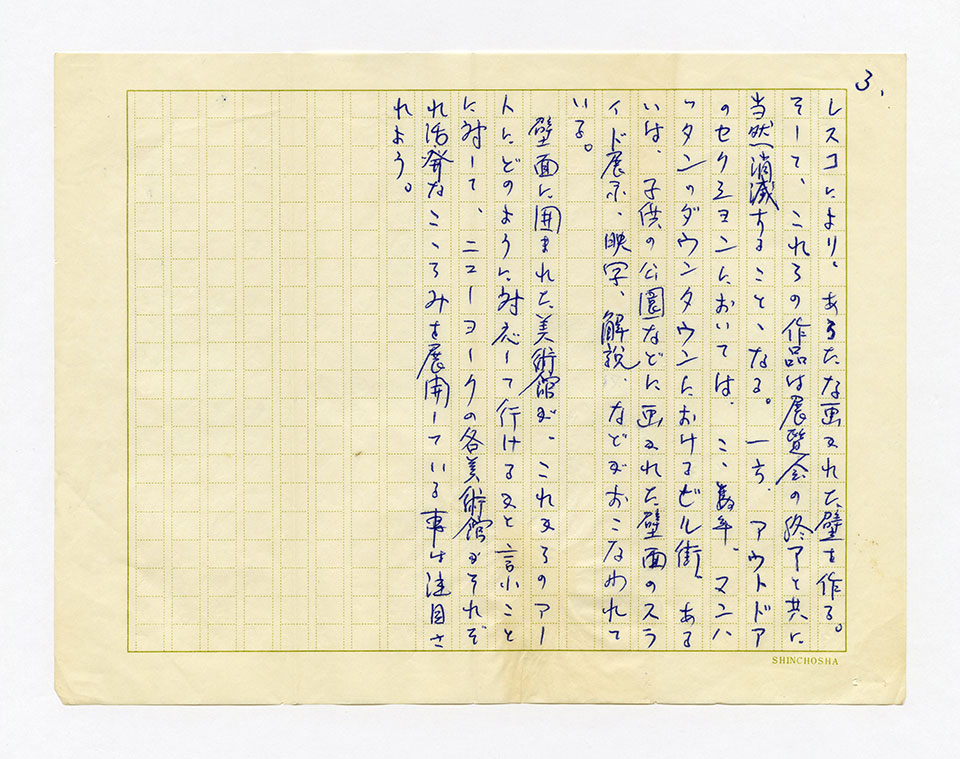 3.
レスコにより、あらたな画された壁を作る。
そして、これらの作品は展覧会の終了と共に
当然消滅することゝなる。一方、アウトドア
のセクションにおいては、こゝ数年、マンハ
ッタンのダウンタウンにおけるビル街、ある
いは、子供の公園などに画された壁面のスラ
イド展示、映写、解説、などがおこなわれて
いる。
壁面に囲まれた美術館が、これからのアー
トにどのように対応して行けるかと言うこと
に対して、ニューヨークの各美術館がそれぞ
れ活発なこゝろみを展開している事は注目さ
れよう。
SHINCHOSHA